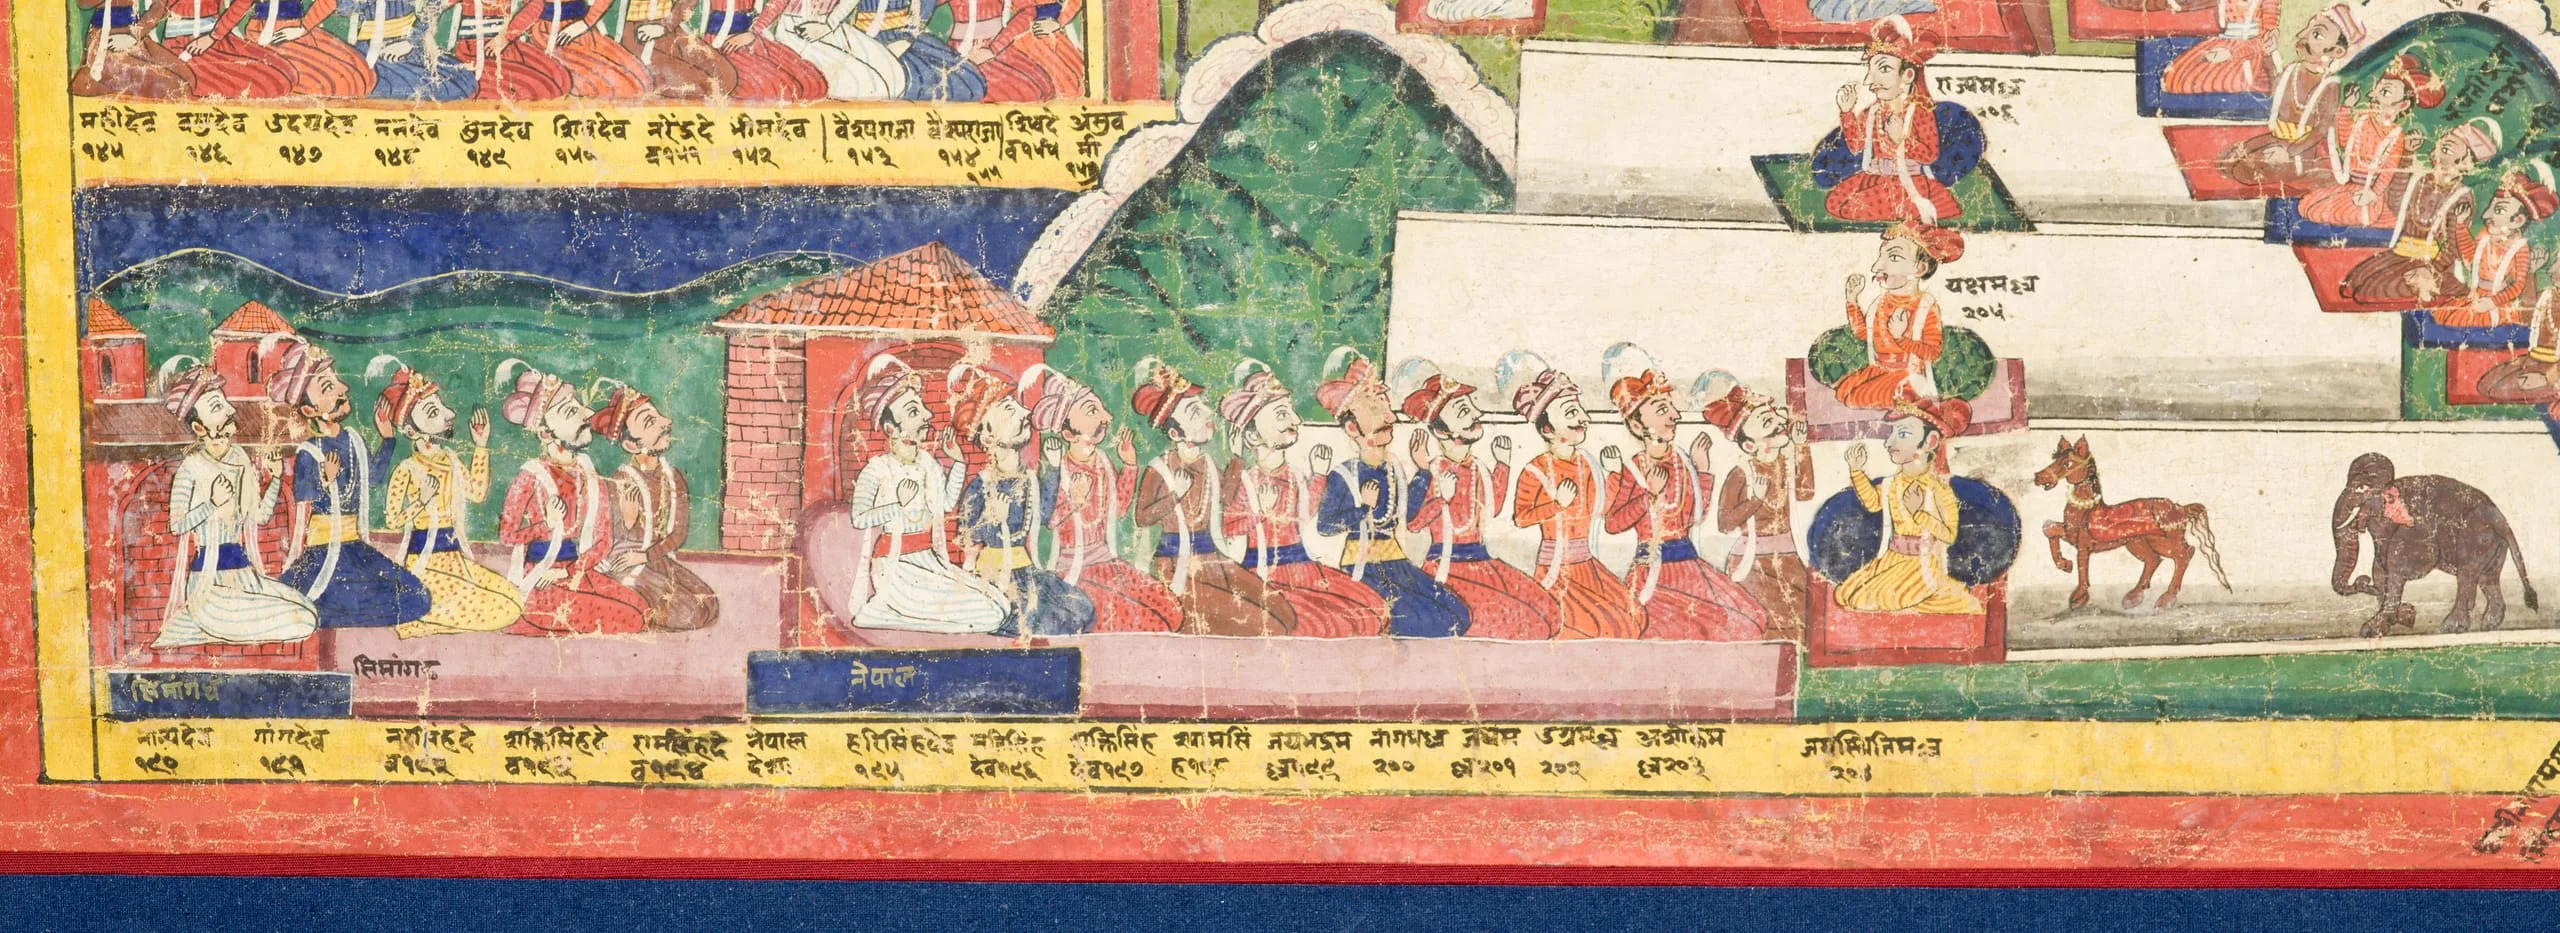 महीदेव वसुदेव उदयदेव नरदेव शिवदेव नरेंद्रदे भीमदेव वैश्यराजा वैश्यराजा शिवदे अंसुव
१४५ १४६ १४७ १४८ १४९ व१५१ १५२ १५३ १५४ व१५५ र्मा
१५५
राज्यमल्ल
२०६
यक्षमल्ल
२०५
सिमांगढ
नेपाल
नान्यदेव गांगदेव नरसिंहदे शक्तिसिंहदे रामसिंहदे नेपाल हरिसिंहदेव मतिसिंह शक्तिसिंह श्यामसिं जयभद्रम नागमल्ल जयम उग्रमल्ल अशोकम जयस्थितिमल्ल
१९० १९१ व१९२ व१९३ व१९४ देशः १९५ देव१९६ देव१९७ ह१९८ ल्ल१९९ २०० ल्ल२०१ २०२ ल्ल२०३ २०४